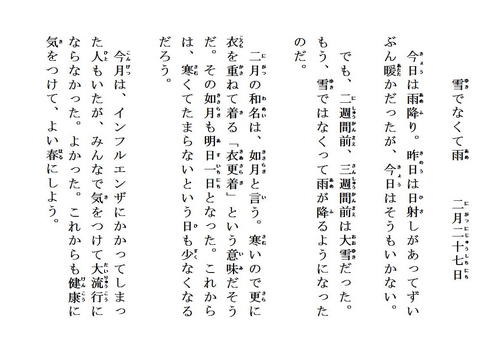 雪でなくて雨　二月二十七日
今日は雨降り。昨日は日射しがあってずい
ぶん暖かだったが、今日はそうもいかない。
でも、二週間前、三週間前は大雪だった。
もう、雪ではなくって雨が降るようになった
のだ。
二月の和名は、如月と言う。寒いので更に
衣を重ねて着る「衣更着」という意味だそう
だ。その如月も明日一日となった。これから
は、寒くてたまらないという日も少なくなる
だろう。
今月は、インフルエンザにかかってしまっ
た人もいたが、みんなで気をつけて大流行に
ならなかった。よかった。これからも健康に
気をつけて、よい春にしよう。